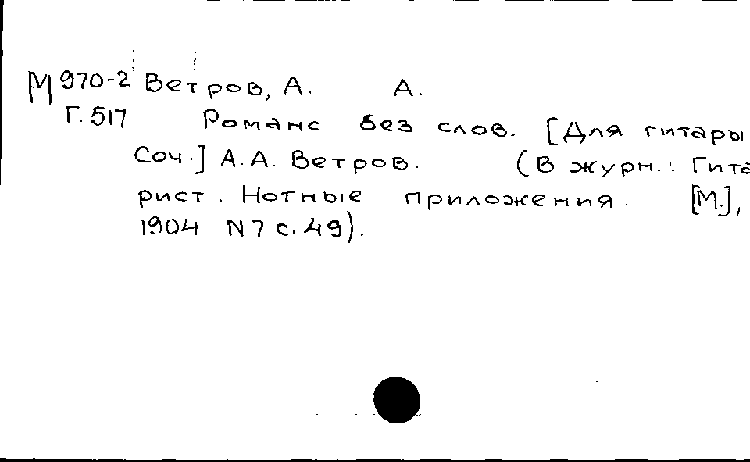 М 970-2 Ветров, А. А.
Г. 517 Романс без слов. [Для гитары
Соч.] А.А. Ветров. (В журн.: Гита
рист. Нотные приложения. [М.],
1904 N7 с. 49).